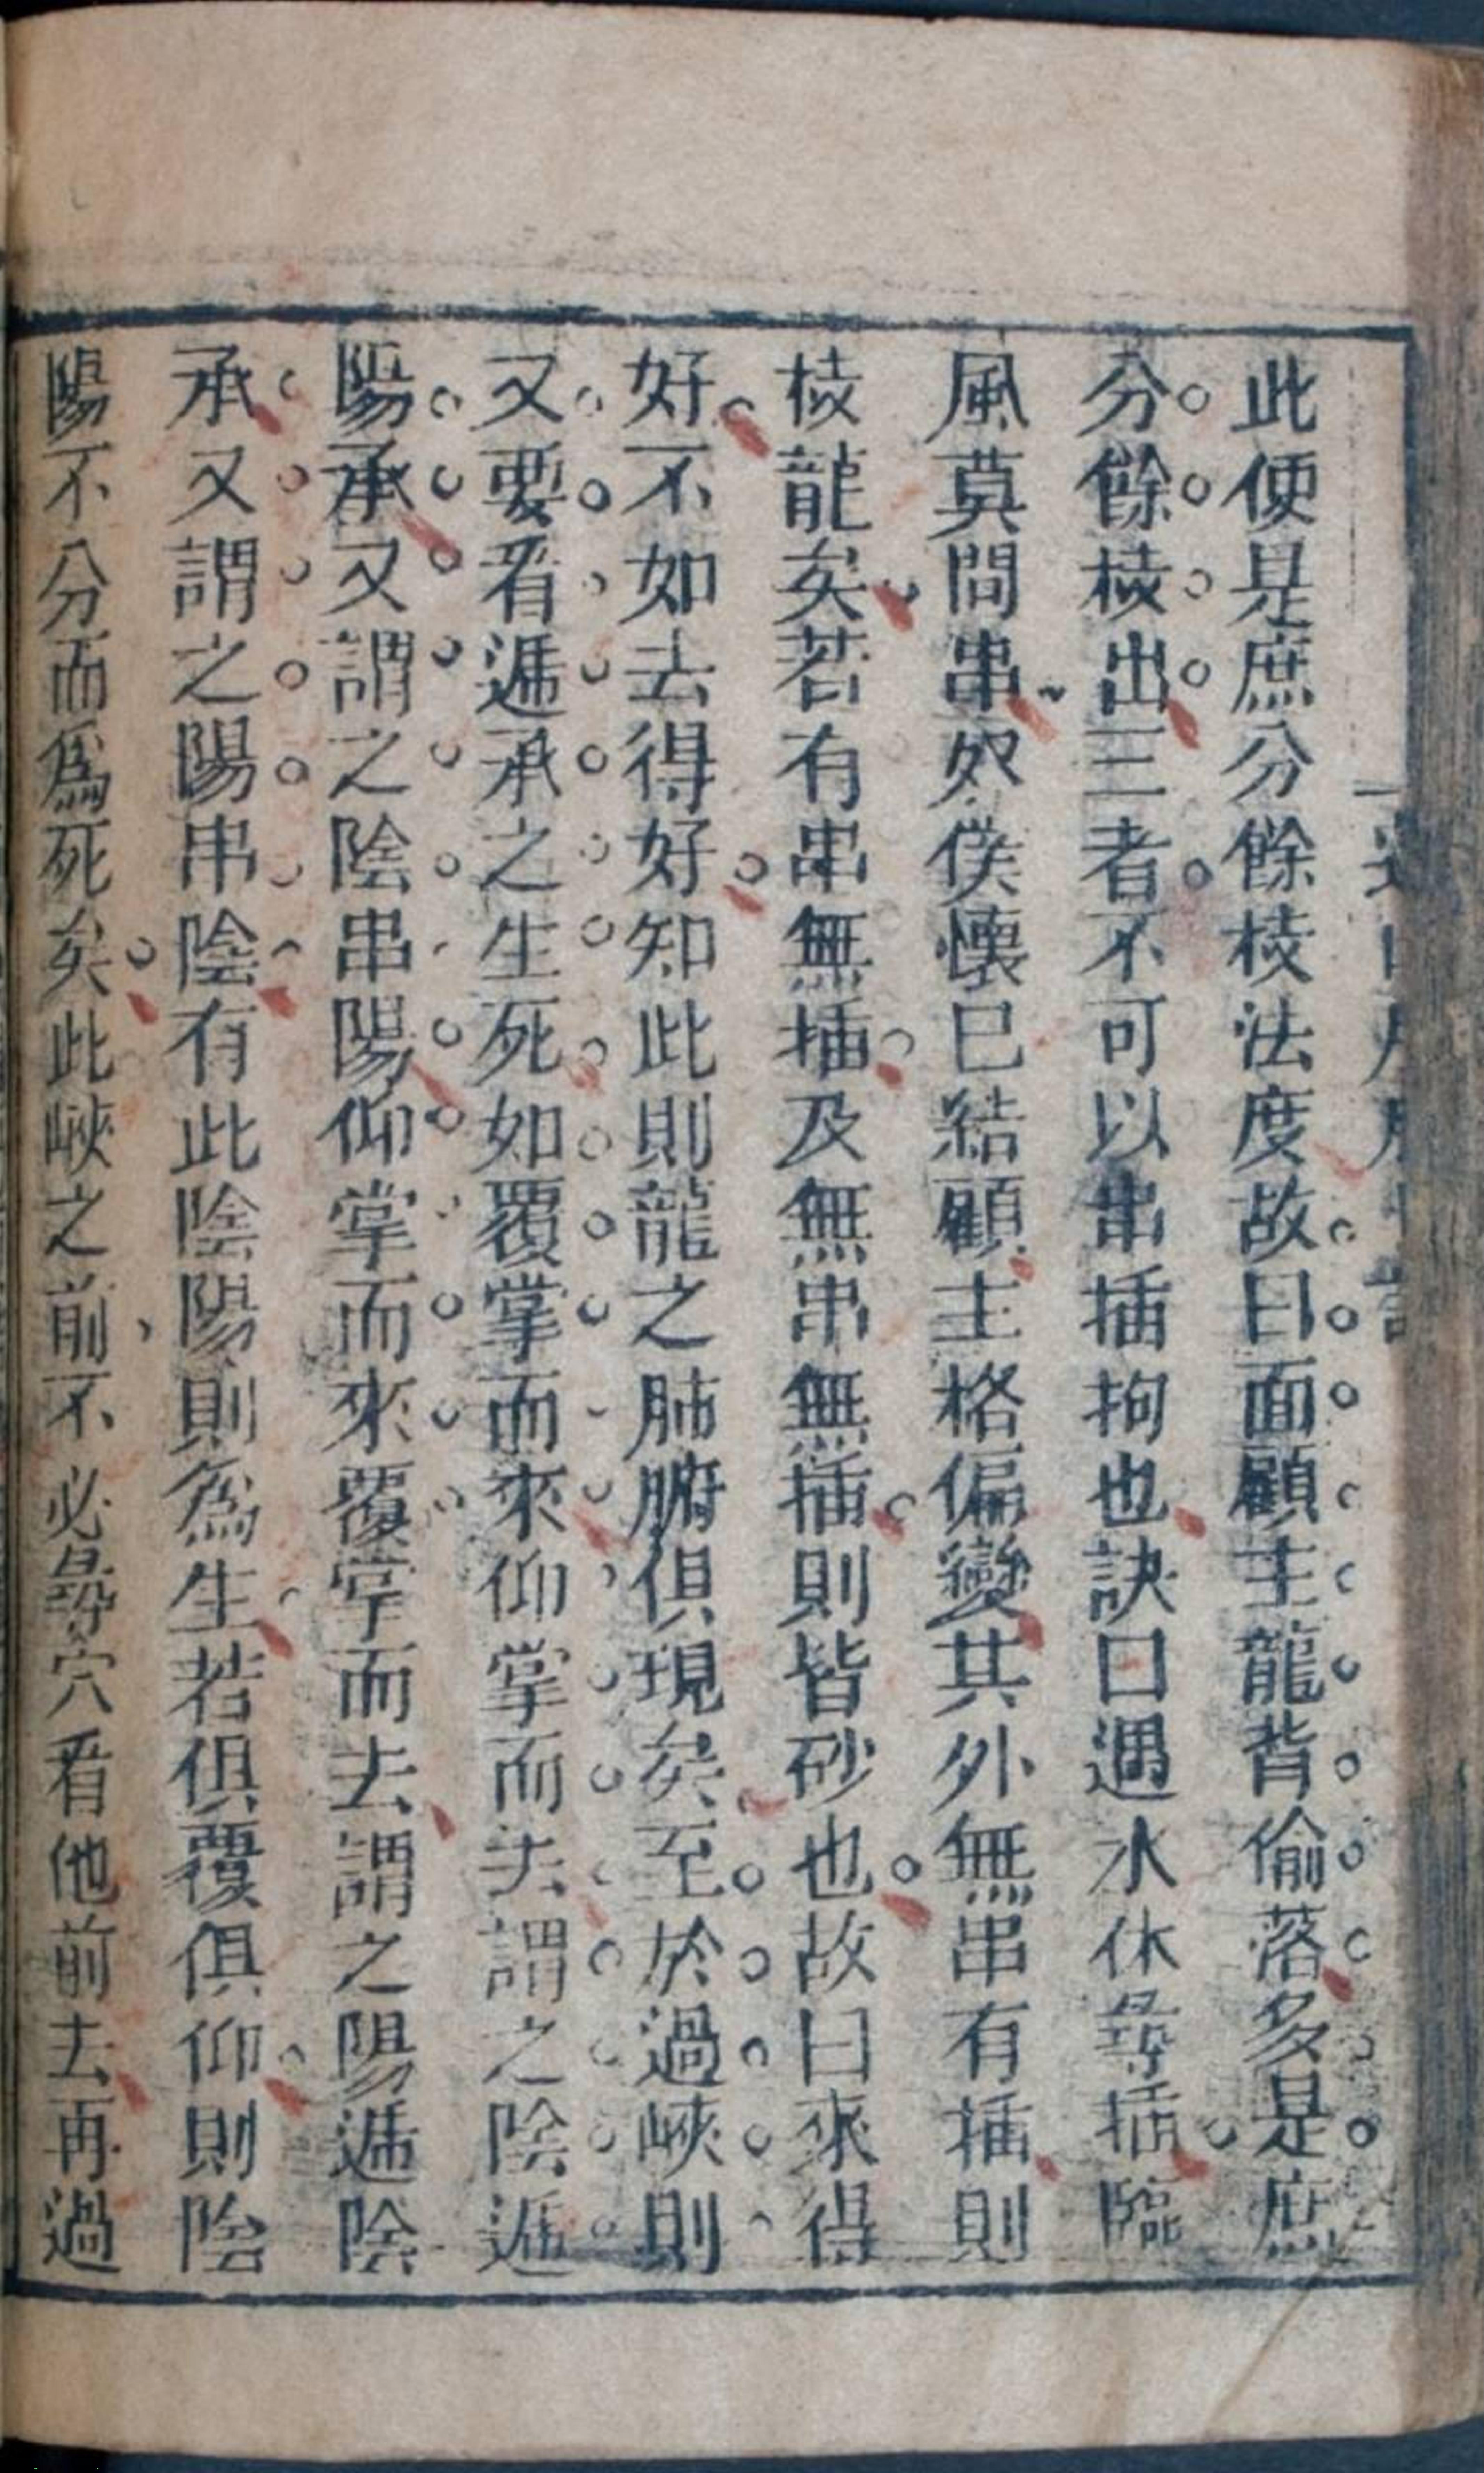 此便是庶分餘枝法度故曰面顧主龍背偷落多是庶
分餘枝出三者不可以出插拘也訣曰遇水休尋插臨
風莫問串奴僕懷已結顧主格偏變其外無串有插則
枝龍矣若有串無插及無串無插則皆砂也故曰來得
好不如去得好知此則龍之肺腑俱現矣至於過峽則
又要看遞承之生死如覆掌而來仰掌而去謂之陰遞
陽承又謂之陰串陽仰掌而來覆掌而去謂之陽遞陰
承又謂之陽串陰有此陰陽則為生若俱覆俱仰則陰
陽不分而為死矣此峽之前不必尋穴看他前去再過